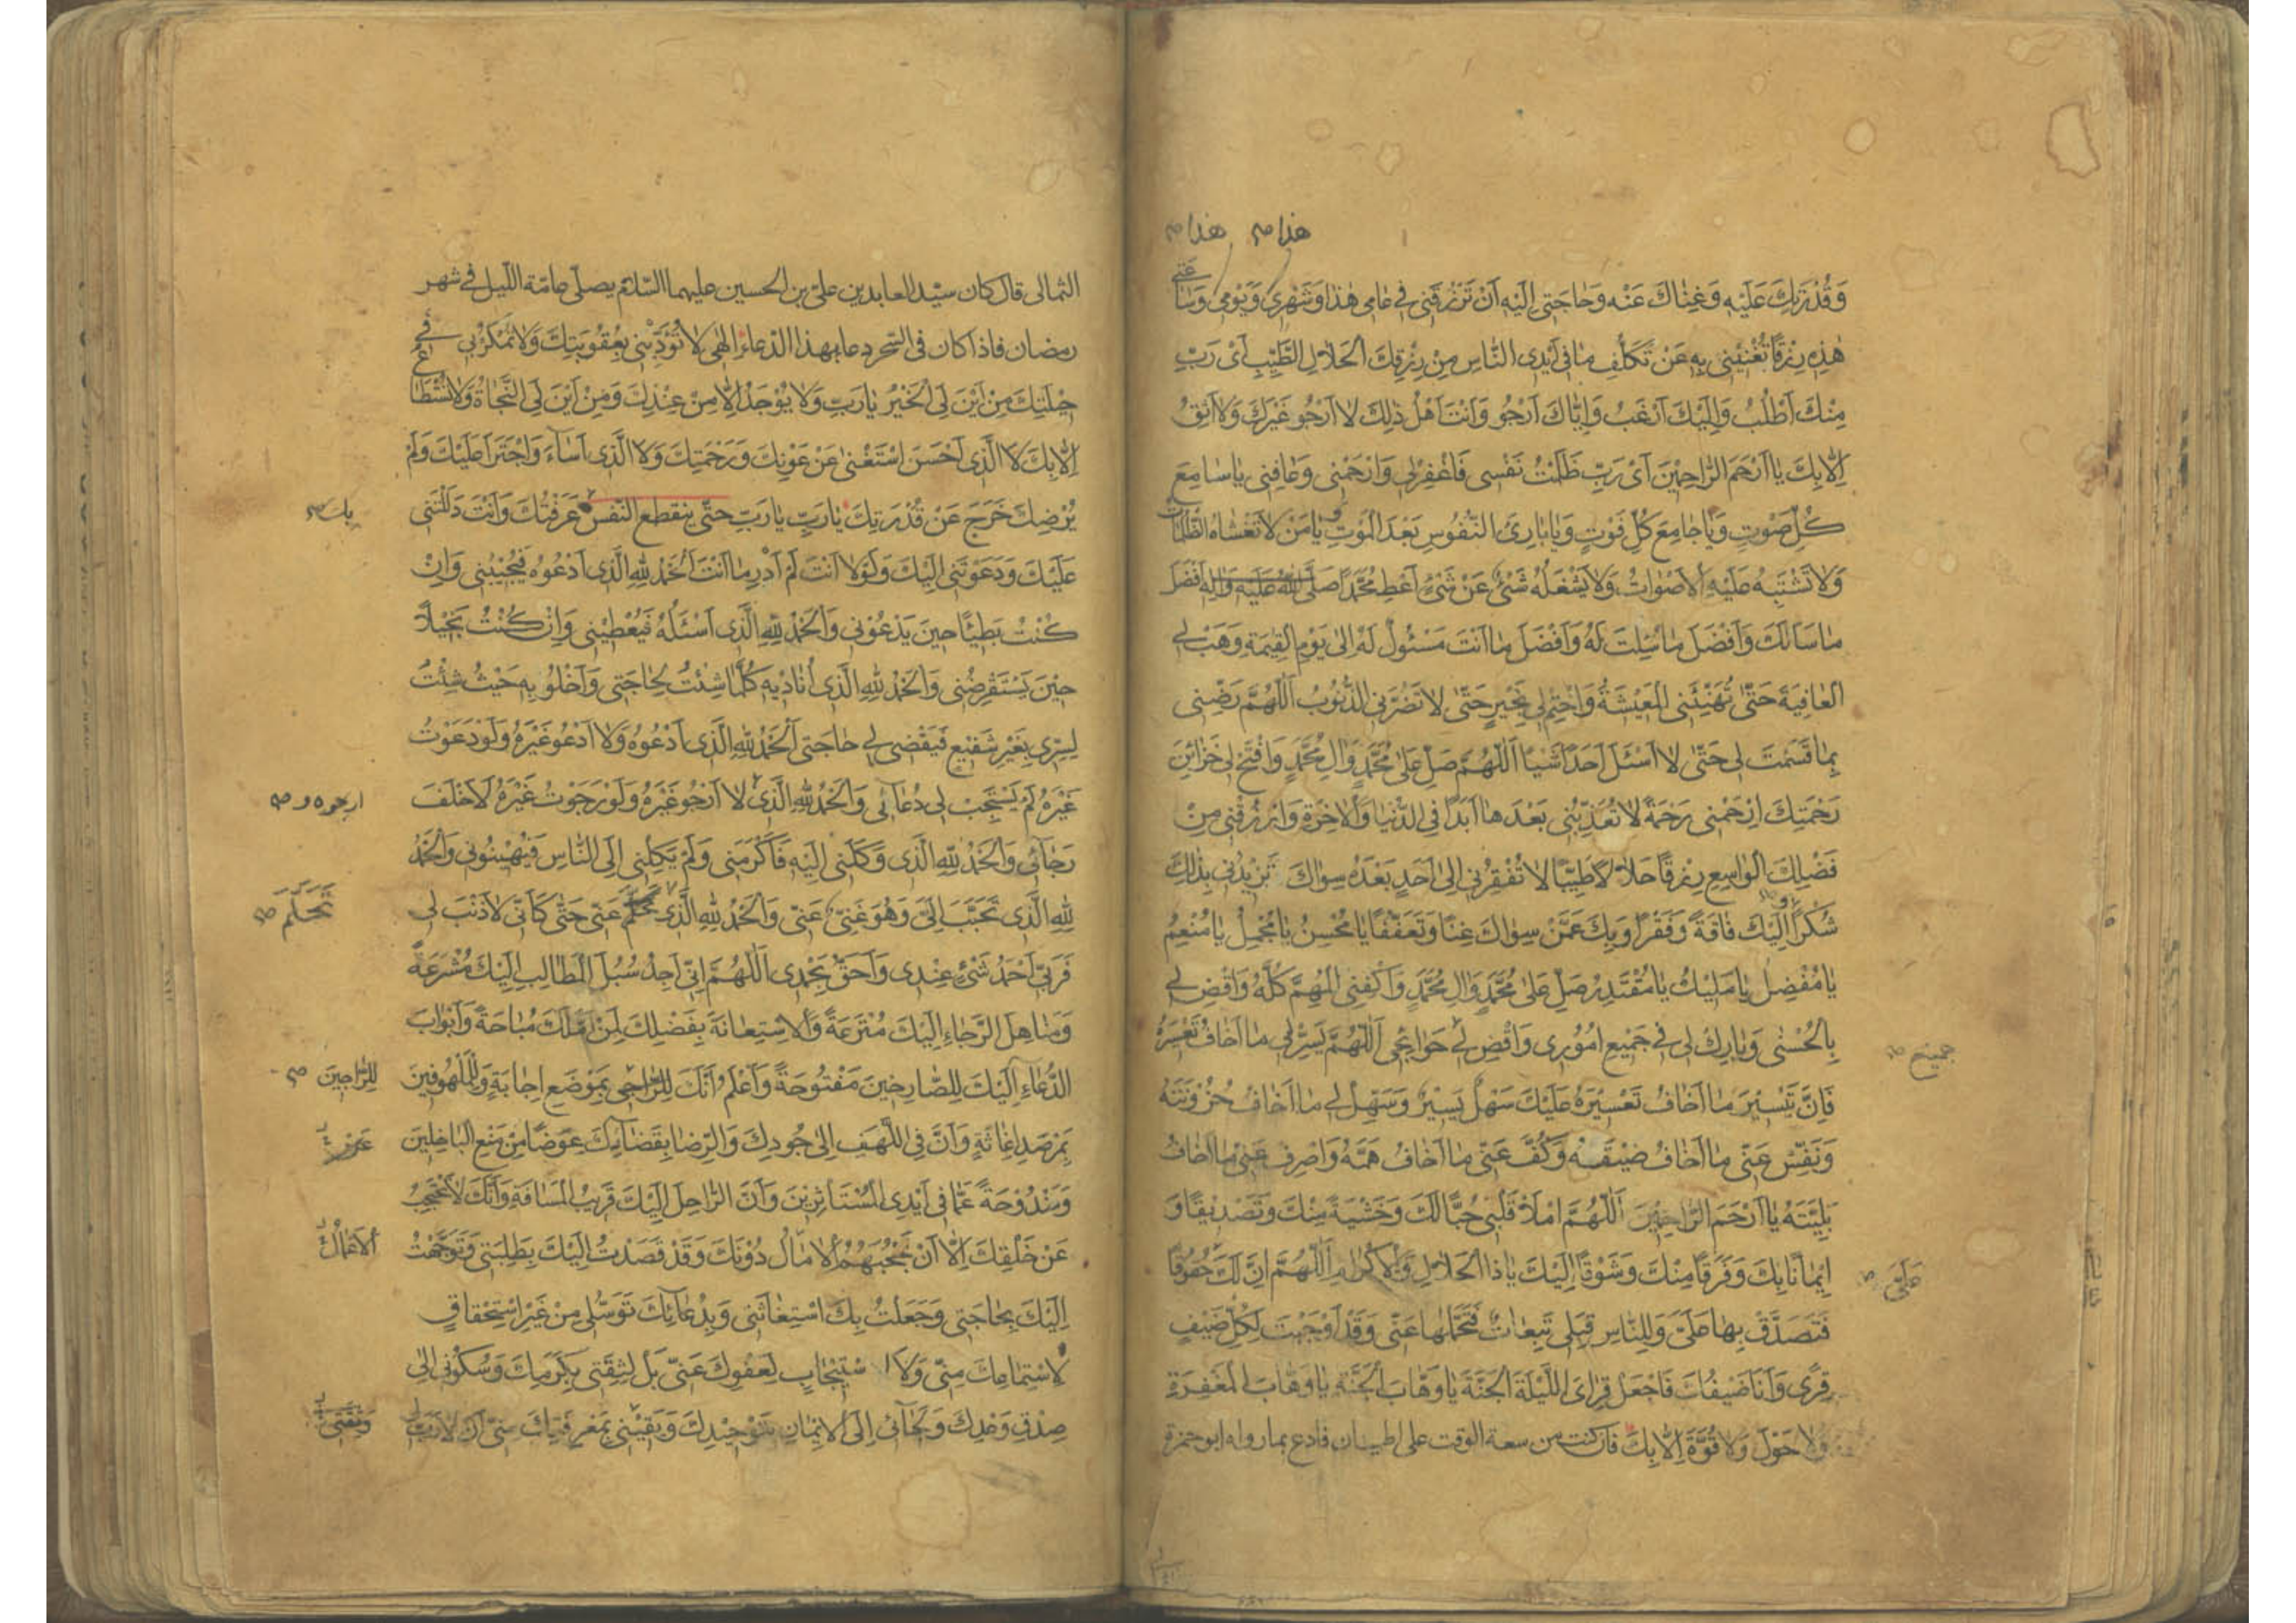 هذا صح هذا صح
وَقُدْرَتِكَ عَلَيْهِ وَغِنَاكَ عَنْهُ وَحَاجَتِى اِلَيْهِ اَنْ تَرْزُقَنِى فِى عَامِى هٰذَا وَشَهْرِى وَيَوْمِى وَسَاعَتِى
هٰذِهِ رِزْقًا تُغْنِيْنِى بِهِ عَنْ تَكَلُّفِ مَا فِى اَيْدِى النَّاسِ مِنْ رِزْقِكَ الْحَلَالِ الطَّيِّبِ اَىْ رَبِّ
مِنْكَ اَطْلُبُ وَاِلَيْكَ اَرْغَبُ وَاِيَّاكَ اَرْجُو وَاَنْتَ اَهْلُ ذٰلِكَ لَا اَرْجُو غَيْرَكَ وَلَا اَثِقُ
اِلَّا بِكَ يَا اَرْحَمَ الرَّاحِمِيْنَ اَىْ رَبِّ ظَلَمْتُ نَفْسِى فَاغْفِرْلِى وَارْحَمْنِى وَعَافِنِى يَا سَامِعَ
كُلِّ صَوْتٍ وَيَا جَامِعَ كُلِّ فَوْتٍ وَيَا بَارِئَ النُّفُوسِ بَعْدَ الْمَوْتِ وَ يَا مَنْ لَا تَغْشَاهُ الظُّلُمَاتُ
وَلَا تَشْتَبِهُ عَلَيْهِ الْاَصْوَاتُ وَلَا يَشْغَلُهُ شَىْءٌ عَنْ شَىْءٍ اَعْطِ مُحَمَّدًا صَلَّى اللّٰهُ عَلَيْهِ وَاٰلِهِ اَفْضَلَ
مَا سَاَلَكَ وَاَفْضَلَ مَا سُئِلْتَ لَهُ وَاَفْضَلَ مَا اَنْتَ مَسْئُولٌ لَهُ اِلٰى يَوْمِ الْقِيٰمَةِ وَهَبْ لِى
الْعَافِيَةَ حَتّٰى تُهَنِّئَنِى الْمَعِيْشَةَ وَاخْتِمْ لِى بِخَيْرٍ حَتّٰى لَا تَضُرَّنِى الذُّنُوبُ اَللّٰهُمَّ رَضِّنِى
بِمَا قَسَمْتَ لِى حَتّٰى لَا اَسْئَلَ اَحَدًا شَيْئًا اَللّٰهُمَّ صَلِّ عَلٰى مُحَمَّدٍ وَاٰلِ مُحَمَّدٍ وَافْتَحْ لِى خَزَائِنَ
رَحْمَتِكَ اِرْحَمْنِى رَحْمَةً لَا تُعَذِّبُنِى بَعْدَهَا اَبَدًا فِى الدُّنْيَا وَالْاٰخِرَةِ وَارْزُقْنِى مِنْ
فَضْلِكَ الْوَاسِعِ رِزْقًا حَلَالًا طَيِّبًا لَا تُفْقِرُنِى اِلٰى اَحَدٍ بَعْدَهُ سِوَاكَ تَزِيْدُنِى بِذٰلِكَ
شُكْرًا وَ اِلَيْكَ فَاقَةً وَفَقْرًا وَبِكَ عَمَّنْ سِوَاكَ غِنًا وَتَعَفُّفًا يَا مُحْسِنُ يَا مُجْمِلُ يَا مُنْعِمُ
يَا مُفْضِلُ يَا مَلِيْكُ يَا مُقْتَدِرُ صَلِّ عَلٰى مُحَمَّدٍ وَاٰلِ مُحَمَّدٍ وَاكْفِنِى الْمُهِمَّ كُلَّهُ وَاقْضِ لِى
بِالْحُسْنٰى وَبَارِكْ لِى فِى جَمِيْعِ اُمُوْرِى وَاقْضِ لِى حَوَائِجِى اَللّٰهُمَّ يَسِّرْلِى مَا اَخَافُ تَعْسِيْرَهُ
جميع صح
فَاِنَّ تَيْسِيْرَ مَا اَخَافُ تَعْسِيْرَهُ عَلَيْكَ سَهْلٌ يَسِيْرٌ وَسَهِّلْ لِى مَا اَخَافُ حُزُوْنَتَهُ
وَنَفِّسْ عَنِّى مَا اَخَافُ ضِيْقَهُ وَكُفَّ عَنِّى مَا اَخَافُ هَمَّهُ وَاصْرِفْ عَنِّى مَا اَخَافُ
بَلِيَّتَهُ يَا اَرْحَمَ الرَّاحِمِيْنَ اَللّٰهُمَّ امْلَأْ قَلْبِى حُبًّا لَكَ وَخَشْيَةً مِنْكَ وَتَصْدِيْقًا وَ
اِيْمَانًا بِكَ وَفَرَقًا مِنْكَ وَشَوْقًا اِلَيْكَ يَا ذَا الْجَلَالِ وَالْاِكْرَامِ اَللّٰهُمَّ اِنَّ لَكَ حُقُوقًا
عَلَىَّ صح
فَتَصَدَّقْ بِهَا عَلَىَّ وَلِلنَّاسِ قِبَلِى تَبِعَاتٌ فَتَحَمَّلْهَا عَنِّى وَقَدْ اَوْجَبْتَ لِكُلِّ ضَيْفٍ
قِرًى وَاَنَا ضَيْفُكَ فَاجْعَلْ قِرَاىَ اللَّيْلَةَ الْجَنَّةَ يَا وَهَّابَ الْجَنَّةِ يَا وَهَّابَ الْمَغْفِرَةِ
وَلَا حَوْلَ وَلَا قُوَّةَ اِلَّا بِكَ فان كنت من سعة الوقت على اطمينان فادع بما رواه ابو حمزة
الثمالى قال كان سيّد العابدين علىّ بن الحسين عليهما السّلام يصلّى عامّة اللّيل فى شهر
رمضان فاذا كان فى السّحر دعا بهذا الدّعاء اِلٰهِى لَا تُؤَدِّبْنِى بِعُقُوبَتِكَ وَلَا تَمْكُرْبِى فِى
حِيْلَتِكَ مِنْ اَيْنَ لِىَ الْخَيْرُ يَا رَبِّ وَلَا يُوْجَدُ اِلَّا مِنْ عِنْدِكَ وَمِنْ اَيْنَ لِىَ النَّجَاةُ وَلَا تُسْتَطَاعُ
اِلَّا بِكَ لَا الَّذِى اَحْسَنَ اسْتَغْنٰى عَنْ عَوْنِكَ وَرَحْمَتِكَ وَلَا الَّذِى اَسَاءَ وَاجْتَرَأَ عَلَيْكَ وَلَمْ
يُرْضِكَ خَرَجَ عَنْ قُدْرَتِكَ يَا رَبِّ يَا رَبِّ حتّى ينقطع النّفس عَرَفْتُكَ وَاَنْتَ دَلَلْتَنِى
بك صح
عَلَيْكَ وَدَعَوْتَنِى اِلَيْكَ وَلَوْلَا اَنْتَ لَمْ اَدْرِ مَا اَنْتَ اَلْحَمْدُ لِلّٰهِ الَّذِى اَدْعُوهُ فَيُجِيْبُنِى وَاِنْ
كُنْتُ بَطِيْئًا حِيْنَ يَدْعُوْنِى وَالْحَمْدُ لِلّٰهِ الَّذِى اَسْئَلُهُ فَيُعْطِيْنِى وَاِنْ كُنْتُ بَخِيْلًا
حِيْنَ يَسْتَقْرِضُنِى وَالْحَمْدُ لِلّٰهِ الَّذِى اُنَادِيْهِ كُلَّمَا شِئْتُ لِحَاجَتِى وَاَخْلُو بِهِ حَيْثُ شِئْتُ
لِسِرِّى بِغَيْرِ شَفِيْعٍ فَيَقْضِى لِى حَاجَتِى اَلْحَمْدُ لِلّٰهِ الَّذِى اَدْعُوهُ وَلَا اَدْعُو غَيْرَهُ وَلَوْ دَعَوْتُ
غَيْرَهُ لَمْ يَسْتَجِبْ لِى دُعَائِى وَالْحَمْدُ لِلّٰهِ الَّذِى لَا اَرْجُو غَيْرَهُ وَلَوْ رَجَوْتُ غَيْرَهُ لَاَخْلَفَ
ارجوه و صح
رَجَائِى وَالْحَمْدُ لِلّٰهِ الَّذِى وَكَلَنِى اِلَيْهِ فَاَكْرَمَنِى وَلَمْ يَكِلْنِى اِلَى النَّاسِ فَيُهِيْنُوْنِى وَالْحَمْدُ
لِلّٰهِ الَّذِى تَحَبَّبَ اِلَىَّ وَهُوَ غَنِىٌّ عَنِّى وَالْحَمْدُ لِلّٰهِ الَّذِى عَنِّى حَتّٰى كَاَنِّى لَا ذَنْبَ لِى
تَحَلَّمَ صح
فَرَبِّى اَحْمَدُ شَىْءٍ عِنْدِى وَاَحَقُّ بِحَمْدِى اَللّٰهُمَّ اِنِّى اَجِدُ سُبُلَ الْمَطَالِبِ اِلَيْكَ مُشْرَعَةً
وَمَنَاهِلَ الرَّجَاءِ اِلَيْكَ مُتْرَعَةً وَالْاِسْتِعَانَةَ بِفَضْلِكَ لِمَنْ اَمَّلَكَ مُبَاحَةً وَاَبْوَابَ
الدُّعَاءِ اِلَيْكَ لِلصَّارِخِيْنَ مَفْتُوْحَةً وَاَعْلَمُ اَنَّكَ لِلرَّاجِى بِمَوْضِعِ اِجَابَةٍ وَلِلْمَلْهُوفِيْنَ
لِلرَّاجِيْنَ صح
بِمَرْصَدِ اِغَاثَةٍ وَاَنَّ فِى اللَّهْفِ اِلٰى جُودِكَ وَالرِّضَا بِقَضَائِكَ عِوَضًا مِنْ مَنْعِ الْبَاخِلِيْنَ
وَمَنْدُوْحَةً عَمَّا فِى اَيْدِى الْمُسْتَأْثِرِيْنَ وَاَنَّ الرَّاحِلَ اِلَيْكَ قَرِيْبُ الْمَسَافَةِ وَاَنَّكَ لَا تَحْتَجِبُ
عَنْ خَلْقِكَ اِلَّا اَنْ تَحْجُبَهُمُ الْاٰمَالُ دُوْنَكَ وَقَدْ قَصَدْتُ اِلَيْكَ بِطَلِبَتِى وَتَوَجَّهْتُ
الْاَعْمَالُ
اِلَيْكَ بِحَاجَتِى وَجَعَلْتُ بِكَ اسْتِغَاثَتِى وَبِدُعَائِكَ تَوَسُّلِى مِنْ غَيْرِ اسْتِحْقَاقٍ
لِاسْتِمَاعِكَ مِنِّى وَلَا اسْتِيْجَابٍ لِعَفْوِكَ عَنِّى بَلْ لِثِقَتِى بِكَرَمِكَ وَسُكُوْنِى اِلٰى
صِدْقِ وَعْدِكَ وَلَجَائِى اِلَى الْاِيْمَانِ بِتَوْحِيْدِكَ وَيَقِيْنِى بِمَعْرِفَتِكَ مِنِّى اَنْ لَا رَبَّ
وَثِقَتِى